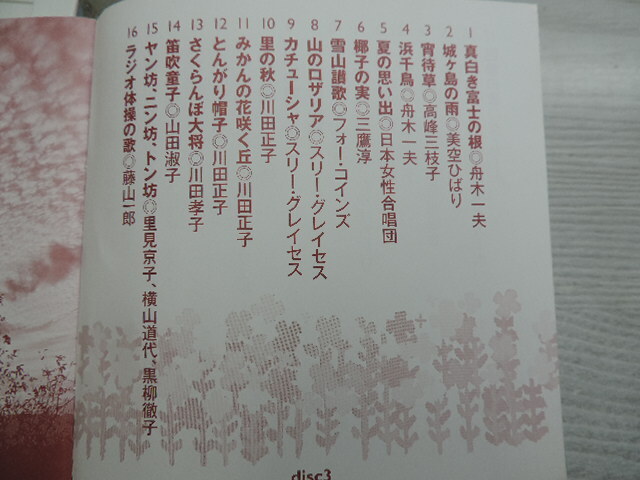 1 真白き富士の根◎舟木一夫
2 城ヶ島の雨◎美空ひばり
3 宵待草◎高峰三枝子
4 浜千鳥◎舟木一夫
5 夏の思い出◎日本女性合唱団
6 椰子の実◎三鷹淳
7 雪山讃歌◎フォー・コインズ
8 山のロザリア◎スリー・グレイセス
9 カチューシャ◎スリー・グレイセス
10 里の秋◎川田正子
11 みかんの花咲く丘◎川田正子
12 とんがり帽子◎川田正子
13 さくらんぼ大将◎川田孝子
14 笛吹童子◎山田淑子
15 ヤン坊、ニン坊、トン坊◎里見京子、横山道代、黒柳徹子
16 ラジオ体操の歌◎藤山一郎
disc3